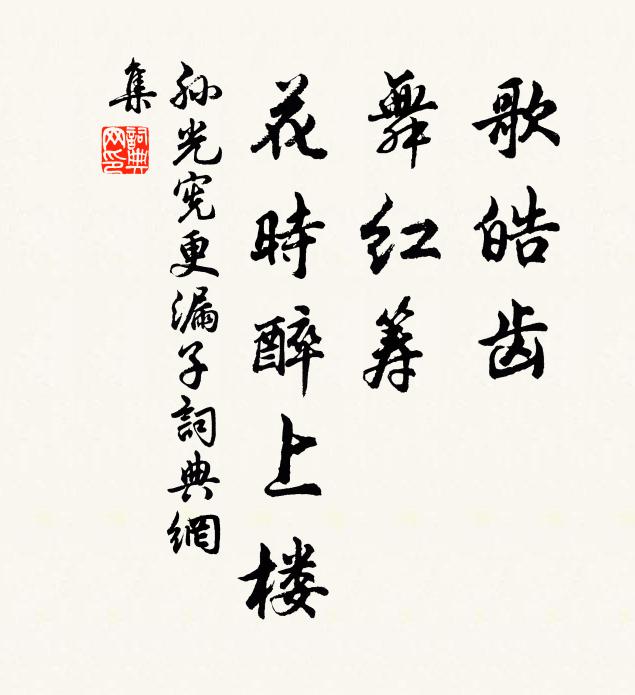 歌皓齿
舞红筹
花時醉上楼
孙光宪更漏子詞典網
集
詞典网印